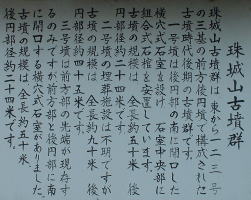 珠城山古墳群
珠城山古墳群は東から一二三号
の三基の前方後円墳で構成された
古墳時代後期の古墳群です。
一号墳は後円部の南に開口した
横穴式石室を設け 石室中央部に
組合式石棺を安置しています。
古墳の規模は 全長約五十米 後
円部径約二十四米です。
二号墳の埋葬施設は不明ですが
古墳の規模は 全長約九十米 後
円部径約四十五米です。
三号墳は前方部の先端が現存す
るのみですが前方部と後円部に南
に開口する横穴式石室がありました。
古墳の規模は全長約五十米
後円部径約二十四米です。